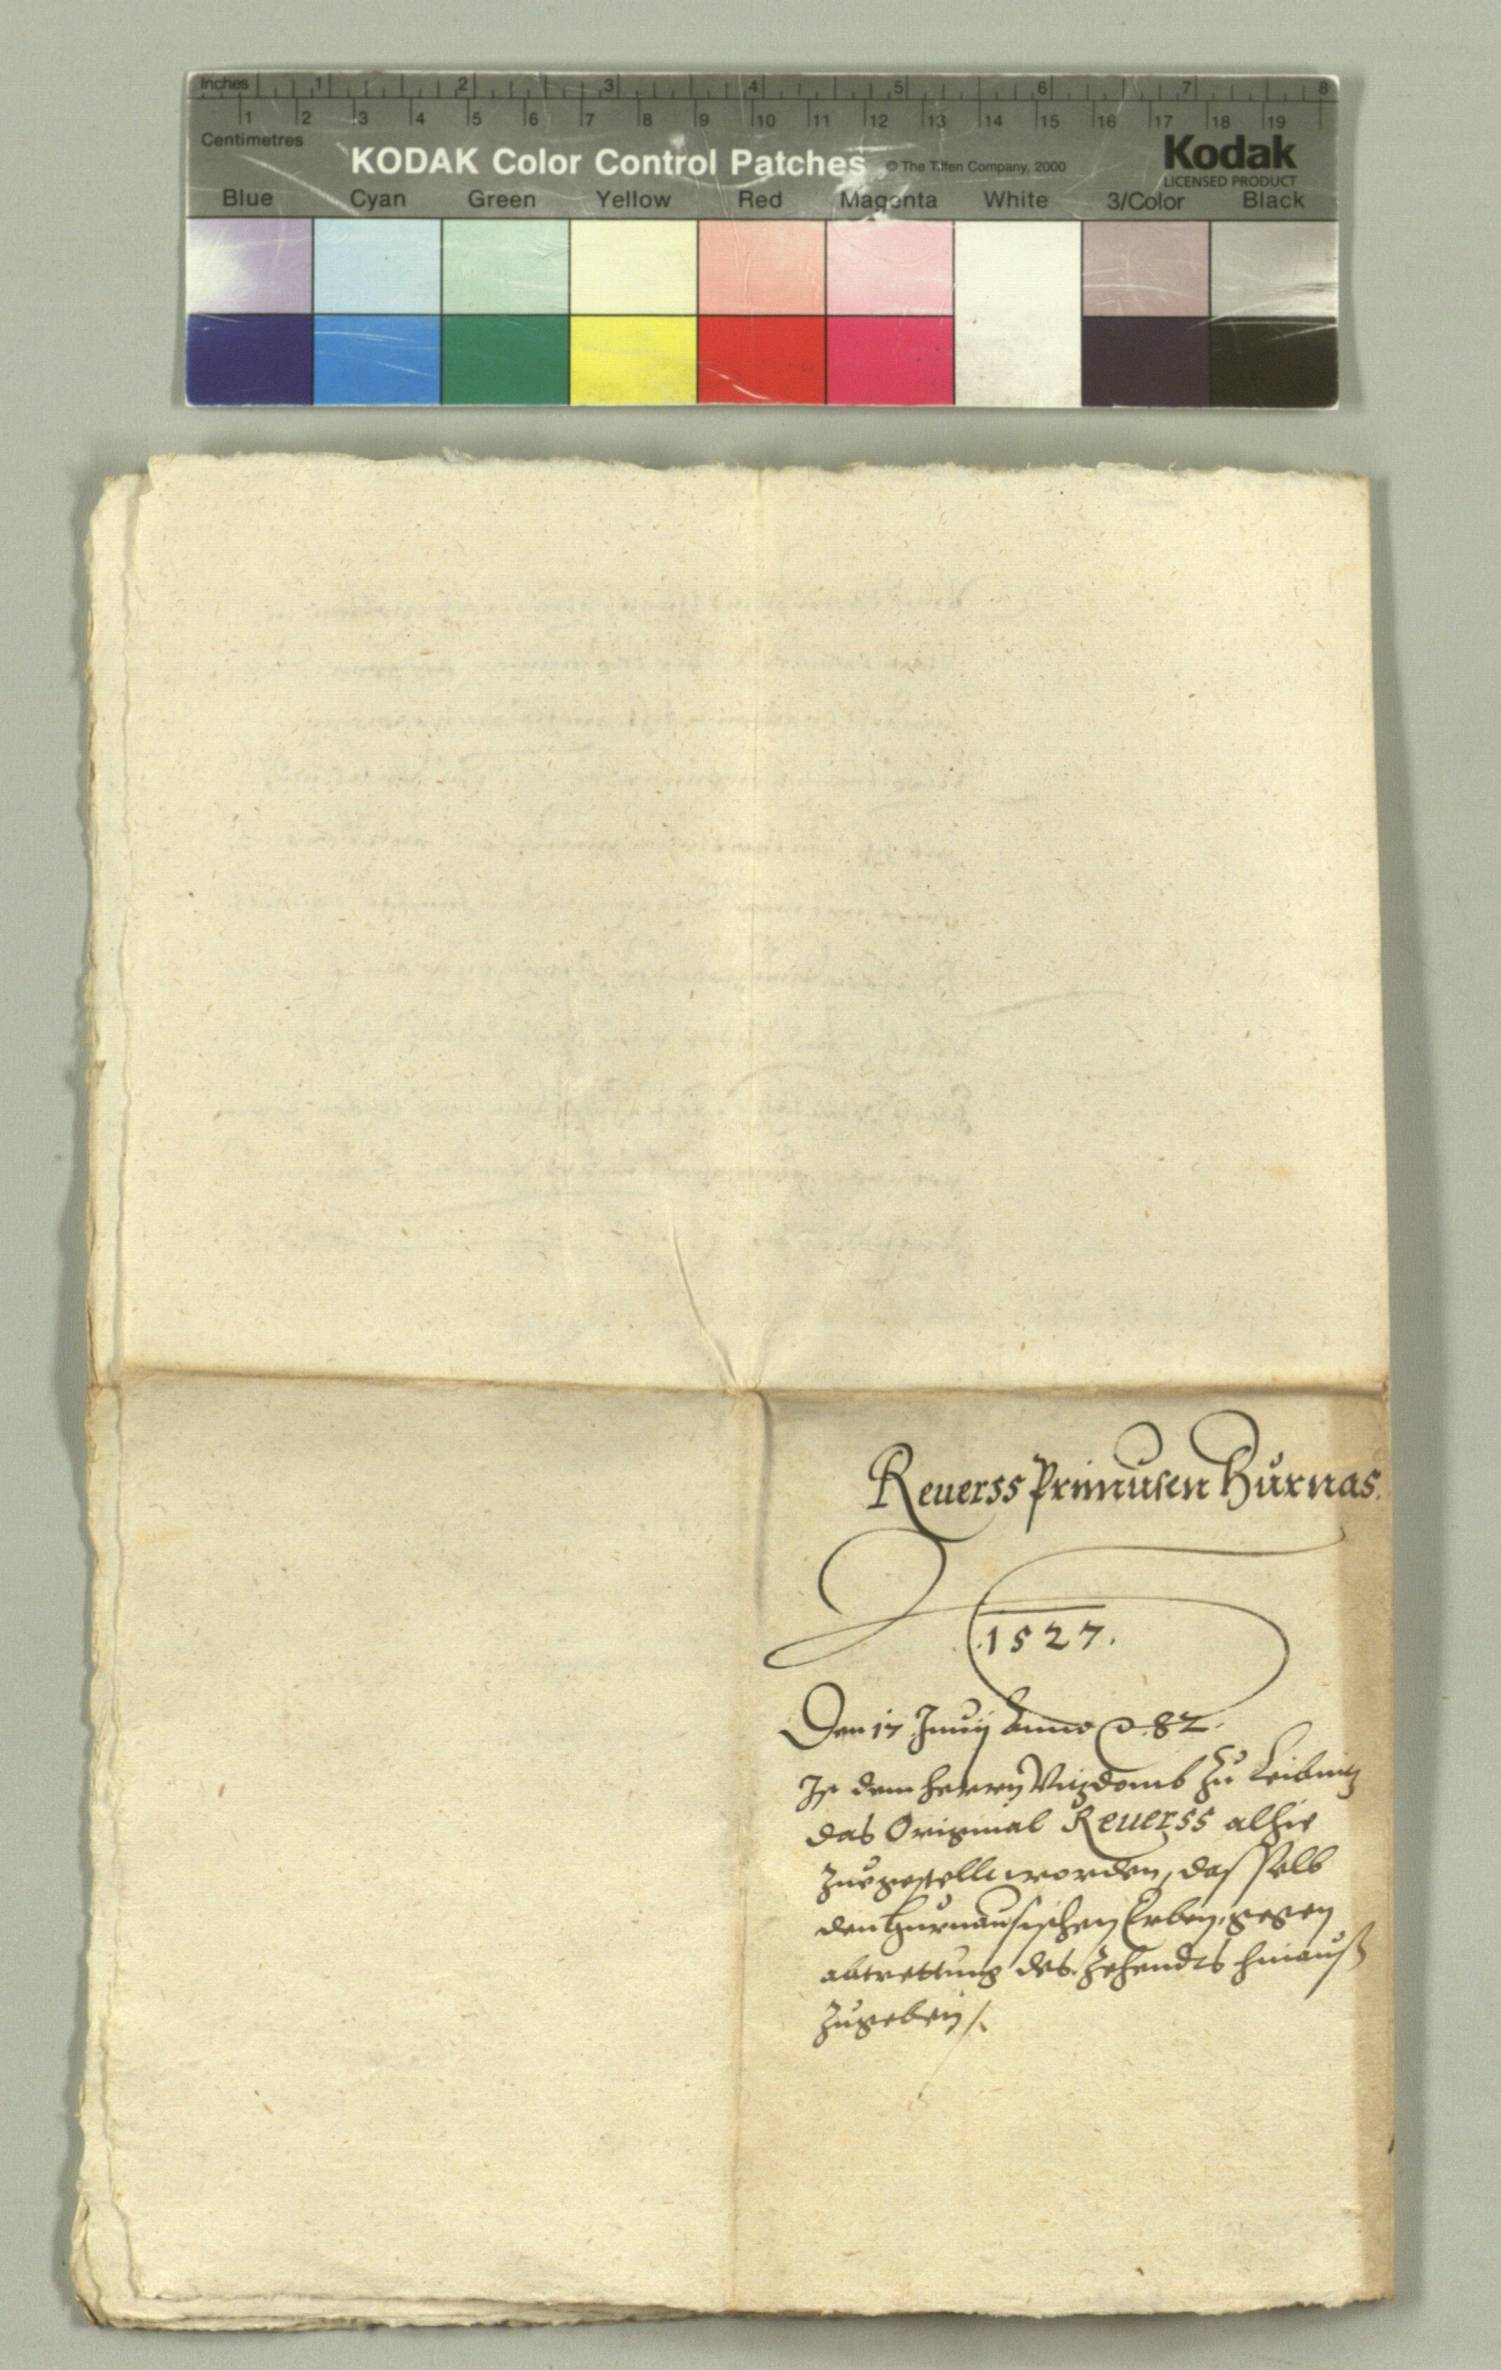 Inches 1 2 3 4 5 6 7 8
1 2 3 4 5 6 7 8 9 10 11 12 13 14 15 16 17 18 19
Centimetres
KODAK Color Control Patches © The Tiffen Company, 2000 Kodak
LICENSED PRODUCT
Blue Cyan Green Yellow Red Magenta White 3/Color Black
Reuerss Primusen Hurnas.
.1527.
Den 17 Junij Anno 82.
Ist dem herrn Vizdomb zu Leibnitz
das Original Reuerss alhie
zuegestelt worden, dasselb
den Hurnausischen Erben, gegen
abtrettung des Zehendts hinauß
zugeben /.